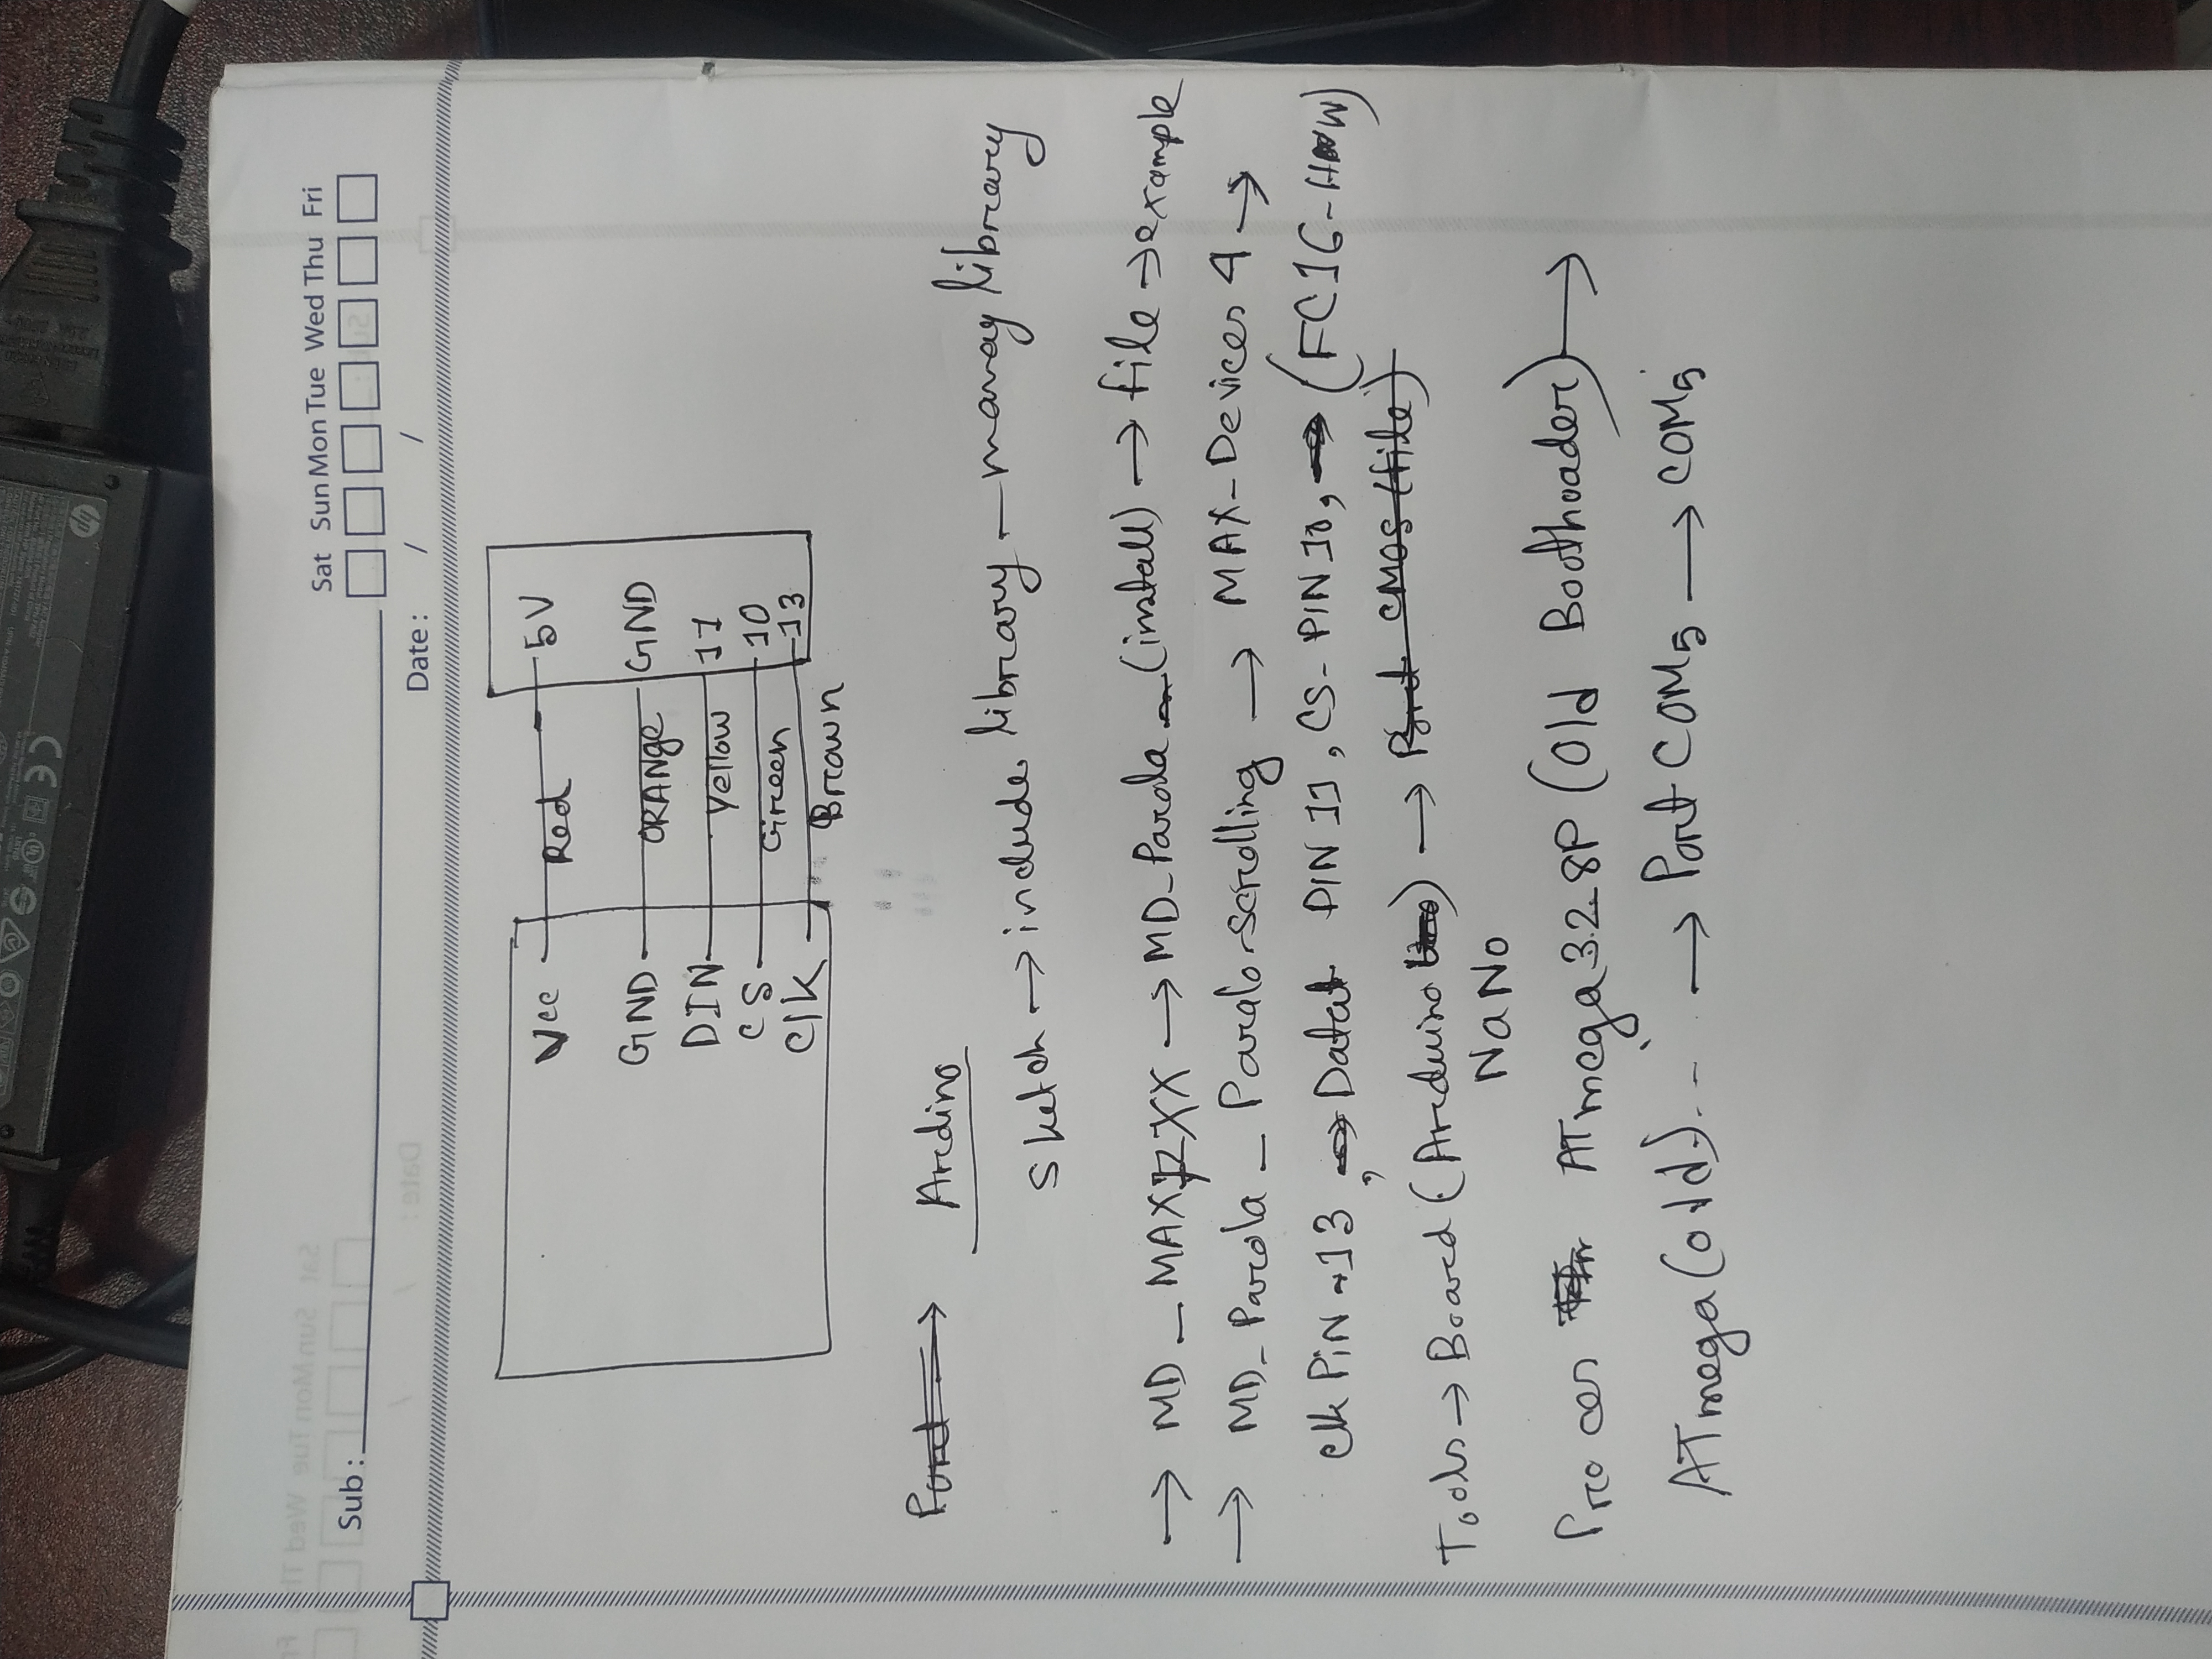 hp
Sat Sun Mon Tue Wed Thu Fri
Sub :
Date : / /
Vcc Red 5V
GND ORANge GND
DIN Yellow 11
CS Green 10
Clk Brown 13
Ardino
Sketch → include library - manag library
→ MD_MAX72XX → MD_Parola - (install) → file → example
→ MD_Parola - Paralo-scrolling → MAX-Devices 4 →
Clk PiN → 13, Data PIN 11, CS-PIN 10, → (FC16-HW)
Tools → Board (Arduino ) →
NaNo
Proces ATmega328P (Old Boothoader) →
ATmega (old)... → Port COM5 → COM5